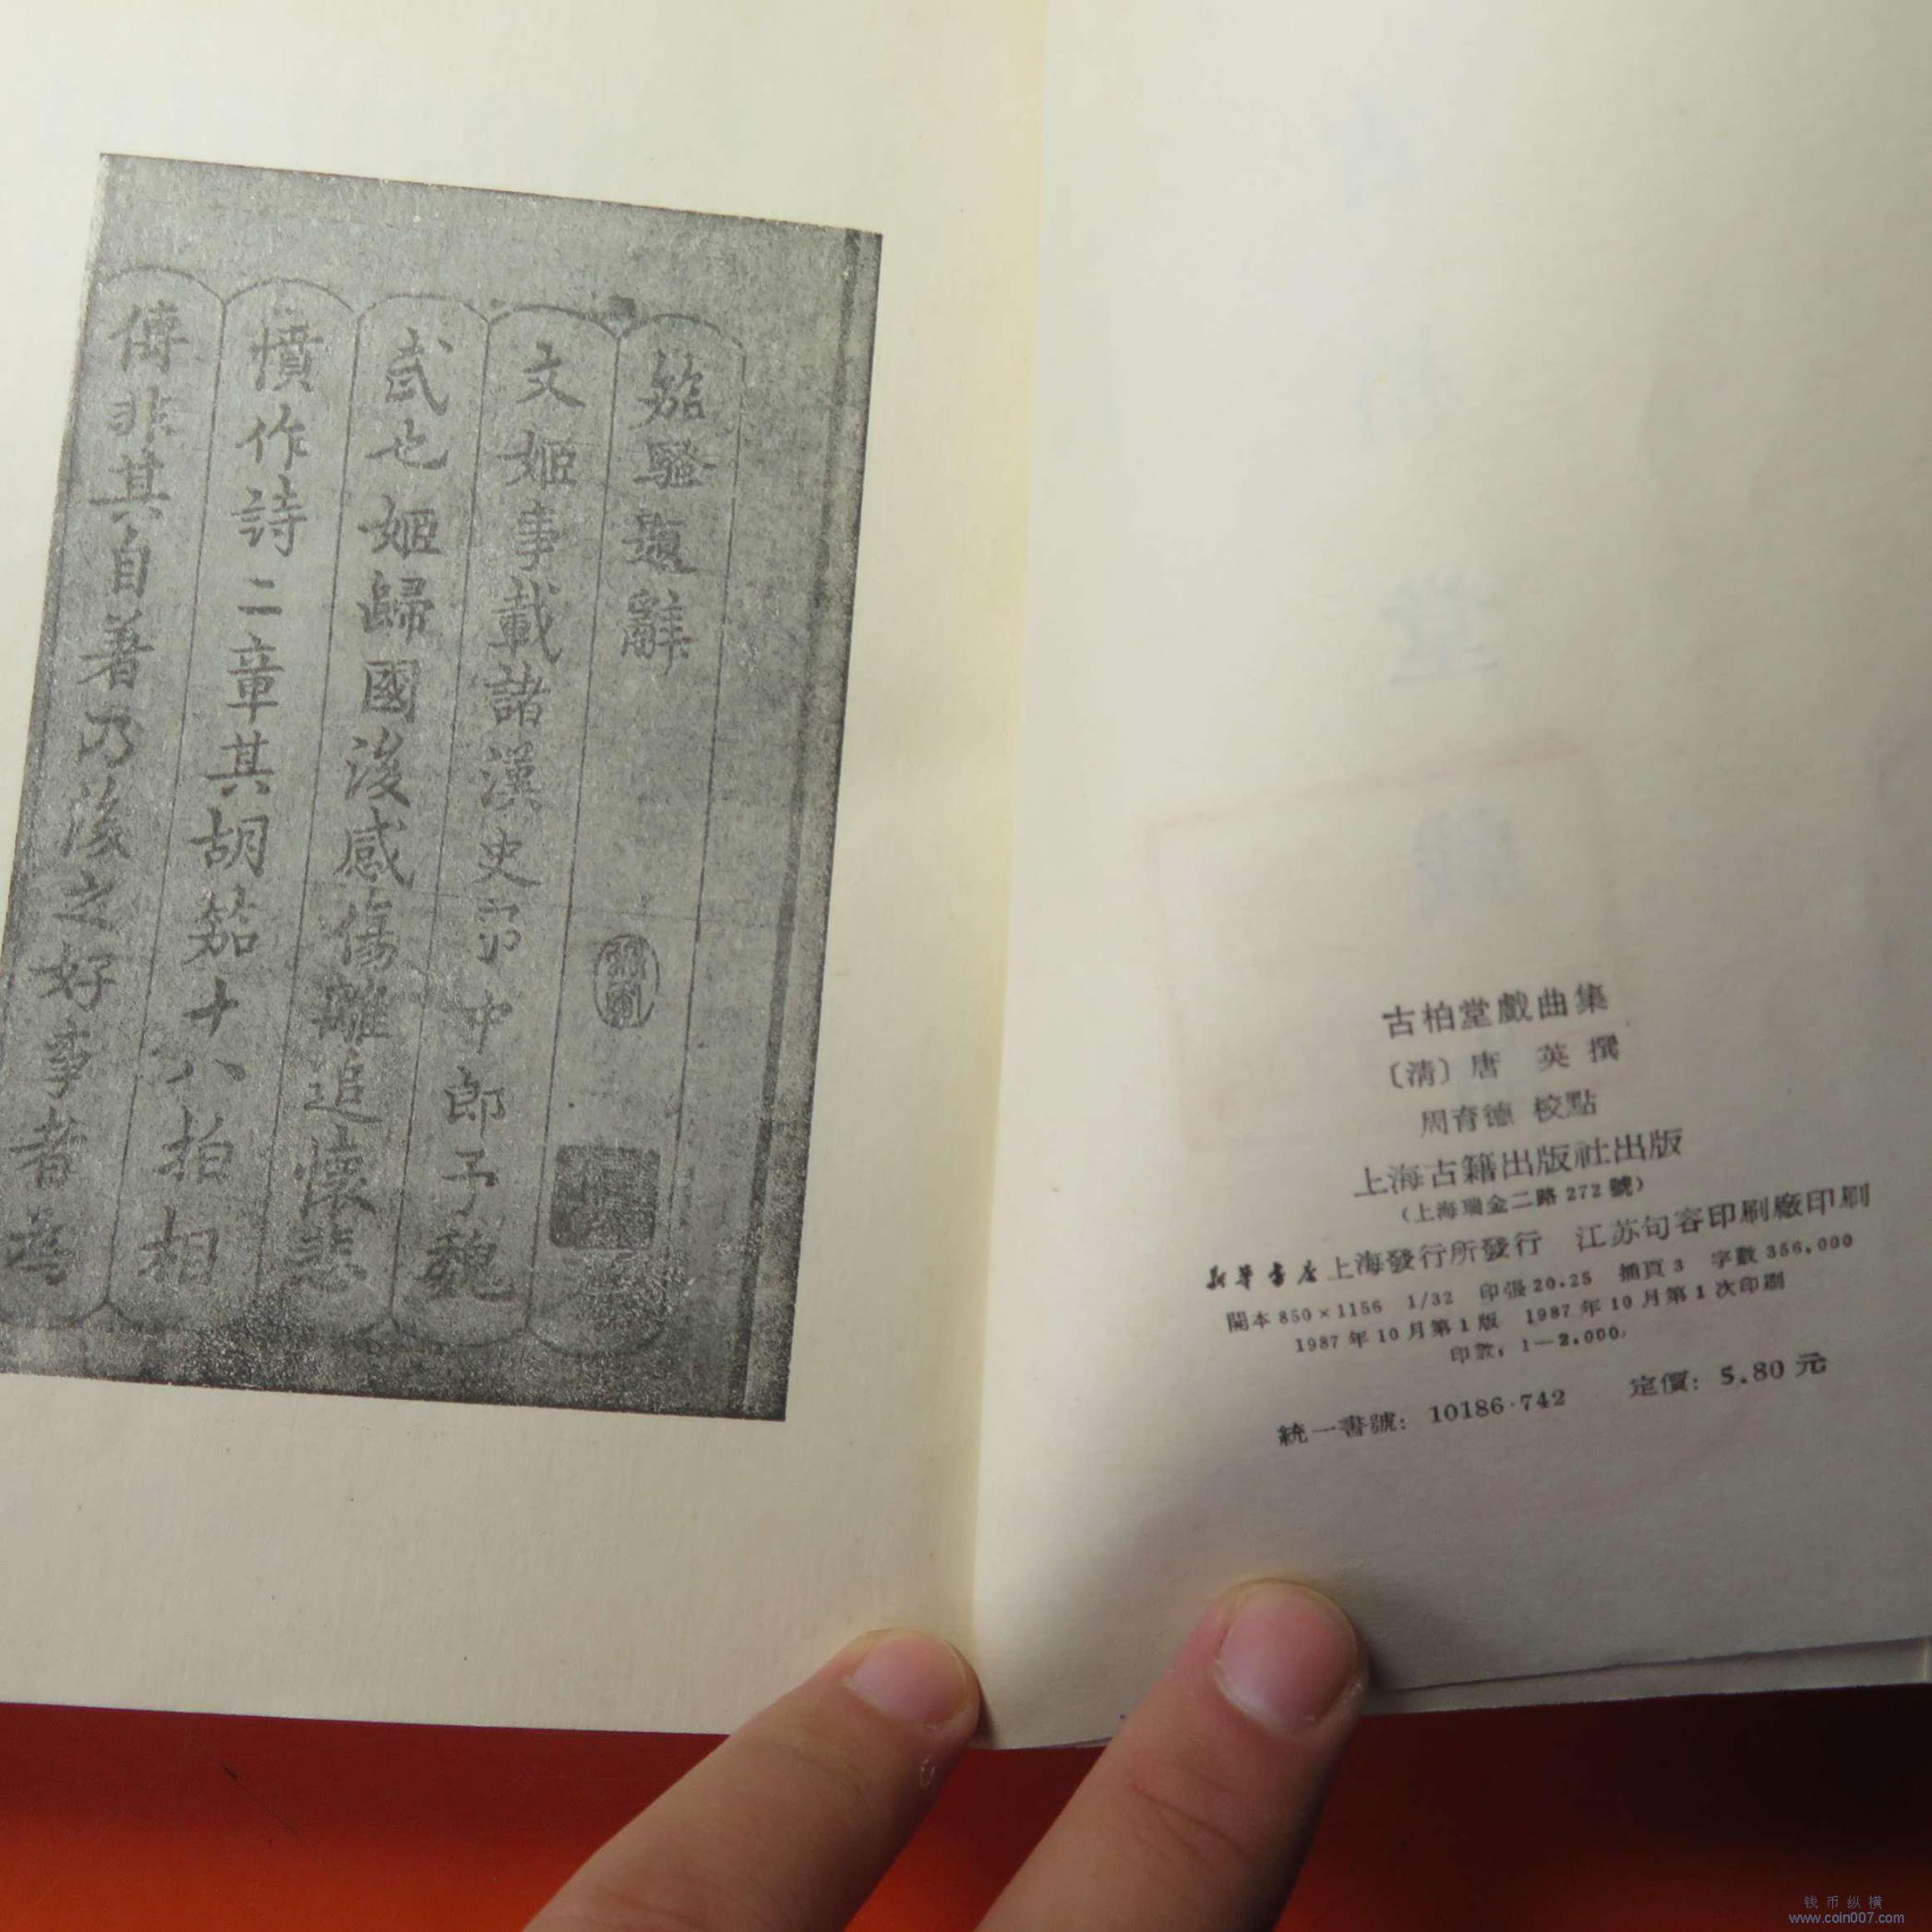 笳騷題辭
文姬事載諸漢史為中郎予魏
武也姬歸國後感傷離追懷悲
憤作詩二章其胡笳十八拍相
傳非其自著乃後之好事者為
古柏堂戲曲集
〔清〕唐 英 撰
周育德 校點
上海古籍出版社出版
(上海瑞金二路 272 號)
新華書店上海發行所發行 江苏句容印刷廠印刷
開本 850×1156 1/32 印張 20.25 插頁 3 字數 356,000
1987 年 10 月第 1 版 1987 年 10 月第 1 次印刷
印數: 1—2,000
統一書號: 10186·742 定價: 5.80 元
钱币纵横
www.coin007.com